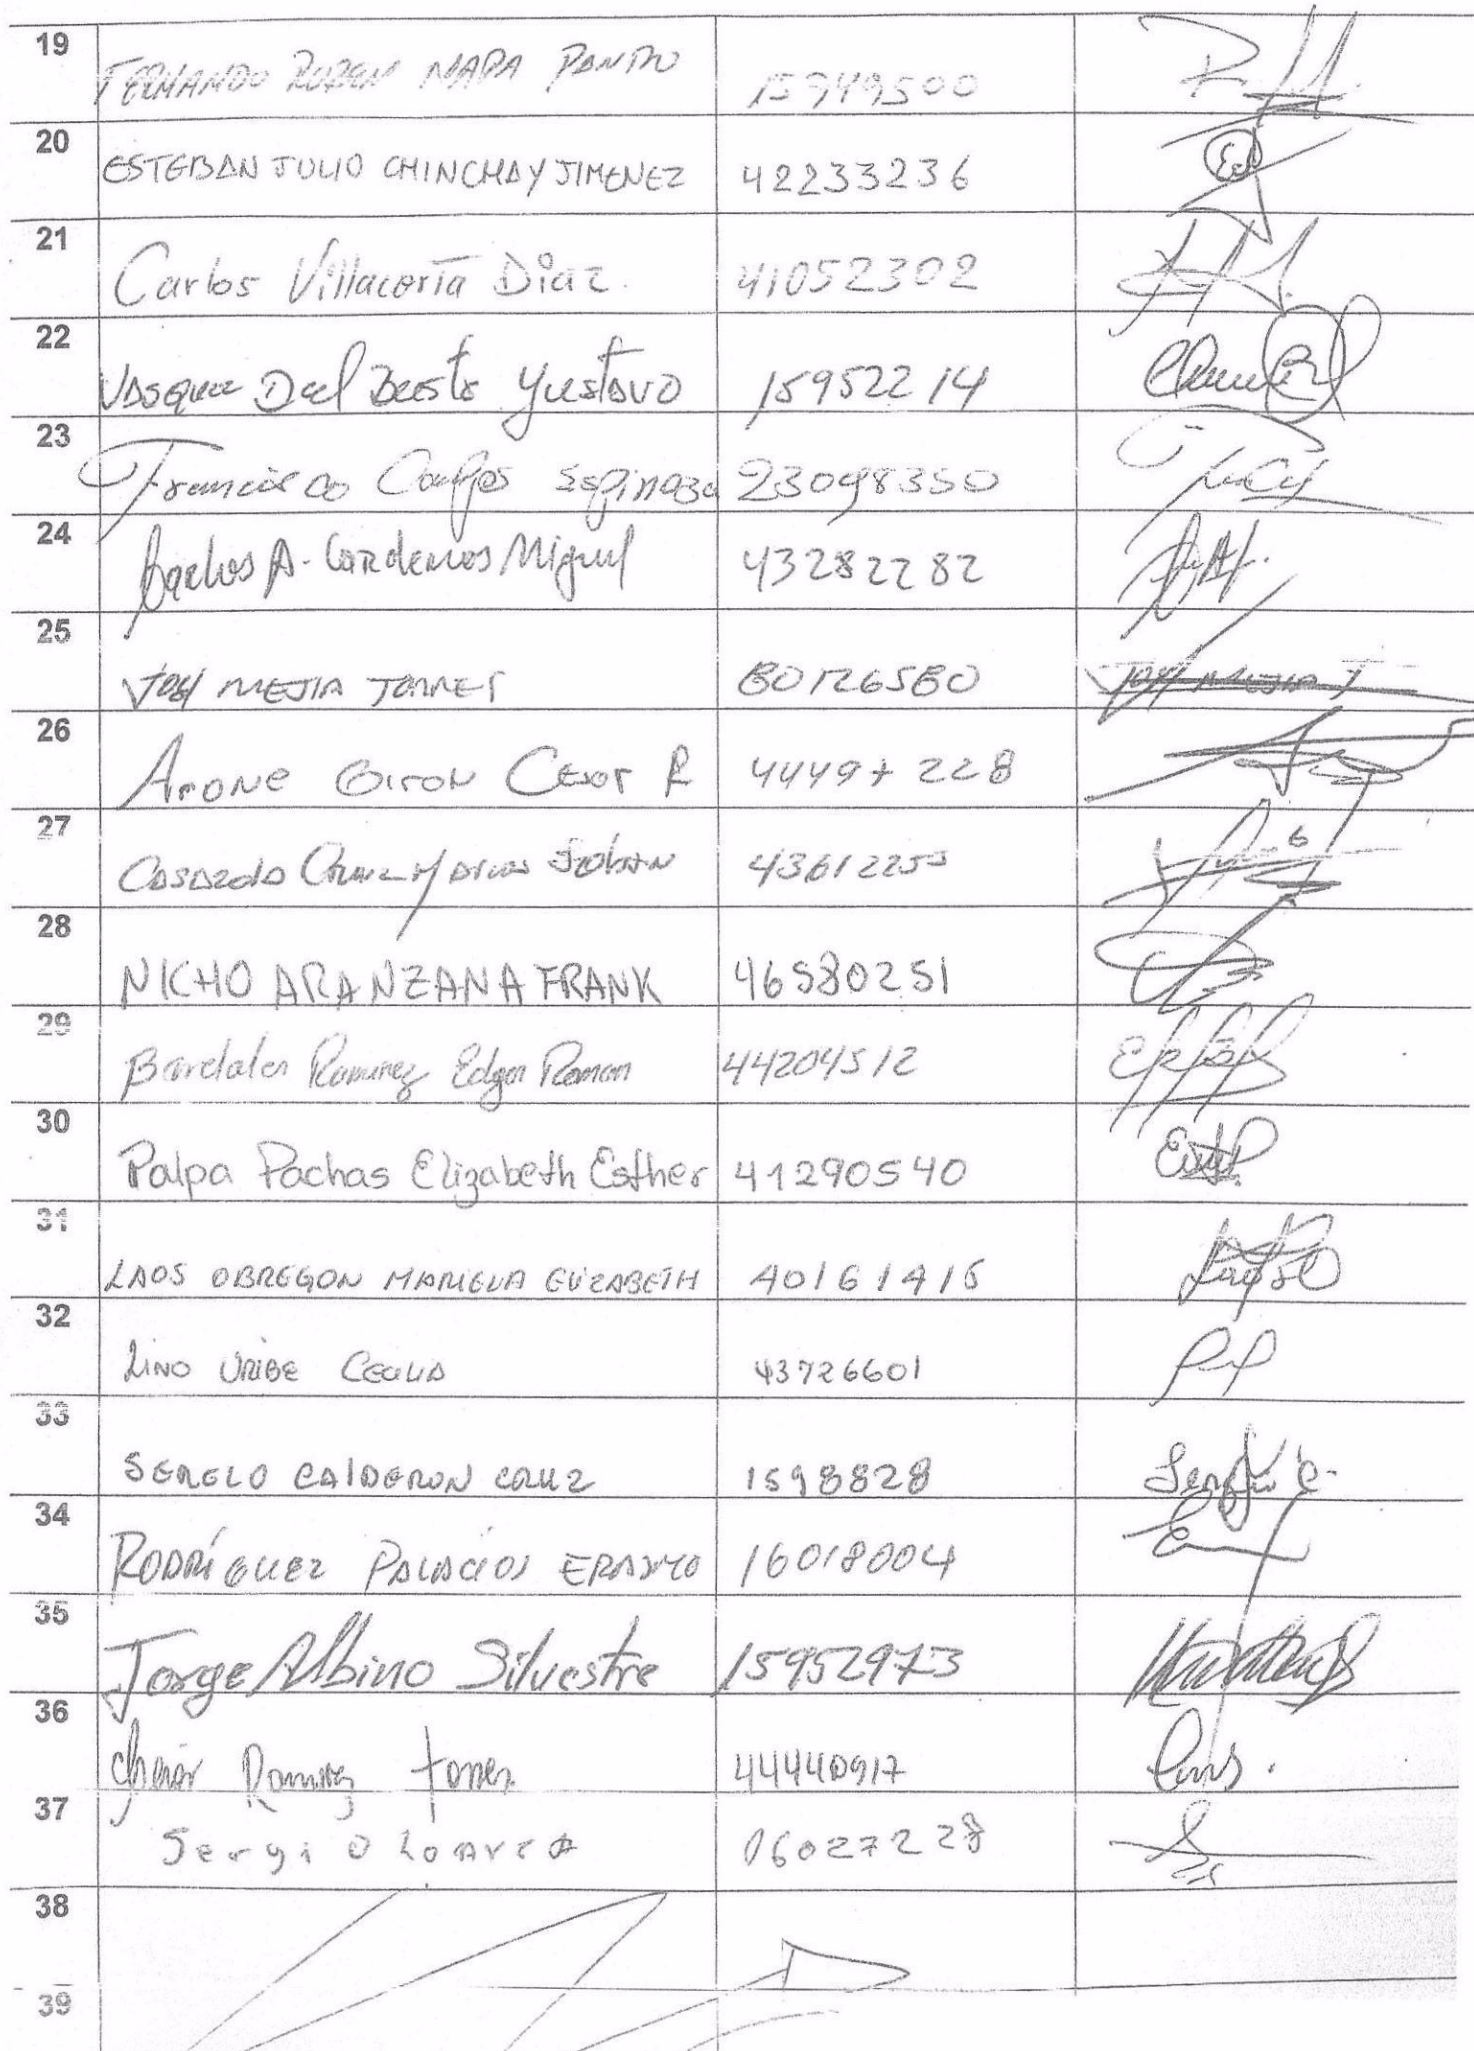 19 FERNANDO RUBEN NAPA PANDO 15949500
20 ESTEBAN JULIO CHINCHAY JIMENEZ 42233236
21 Carlos Villacorta Diaz. 41052302
22 VASQUEZ Del Busto Gustavo 15952214
23 Francisco Espinoza 23098350
24 Carlos A. Cardenas Miguel 43282282
25 MEJIA TORRES 80126580
26 Arone Giron Cesar R 44497228
27 43612255
28 NICHO ARANZANA FRANK 46580251
29 Bardales Ramirez Edgar Roman 44204512
30 Palpa Pachas Elizabeth Esther 41290540
31 LAOS OBREGON MARIELA ELIZABETH 40161415
32 LINO URIBE CECILIA 43726601
33 SERGIO CALDERON CRUZ 1598828
34 RODRÍGUEZ PALACIOS ERASMO 16018004
35 Jorge Albino Silvestre 15952973
36 Ramirez Torres 44440917
37 Sergio Loarza 06027228
38
39